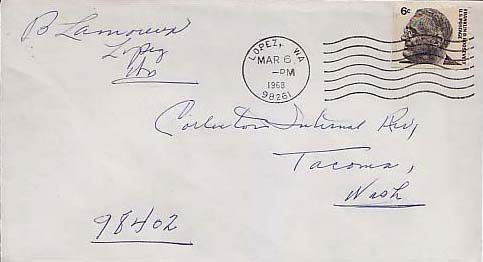 B Lamoreux
Lopez
Wa
LOPEZ, WA
MAR 6
-PM
1968
98261
6¢
FRANKLIN D. ROOSEVELT
U.S. POSTAGE
Internal Rev,
Tacoma,
Wash
98402